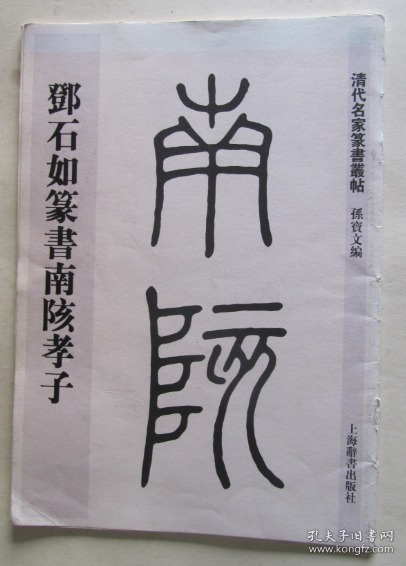 清代名家篆書叢帖 孫寶文編
上海辭書出版社
南陔
鄧石如篆書南陔孝子
孔夫子旧书网
www.kongfz.com